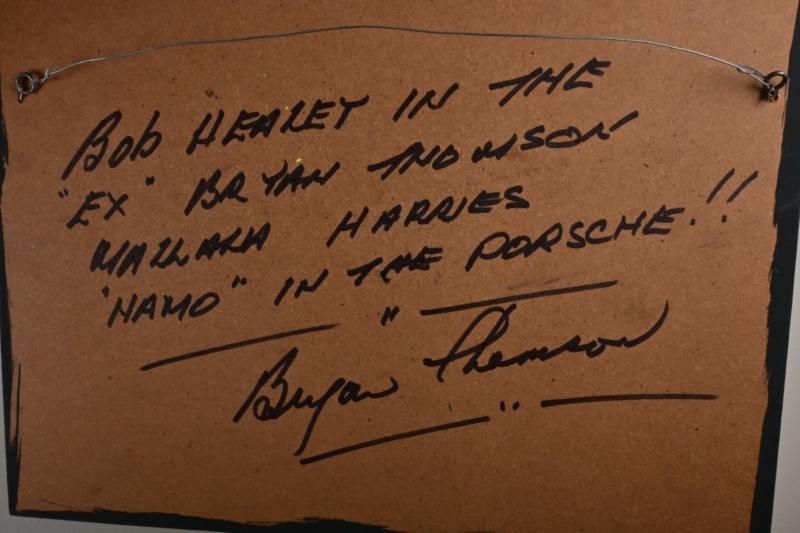 Bob HEALEY IN THE
"EX" BRYAN THOMSON
MALLALA HARRIES
"NAMO" IN THE PORSCHE.!!
Bryan Thomson